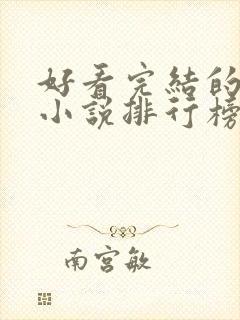 好看完結的
小說排行榜
南宮敏